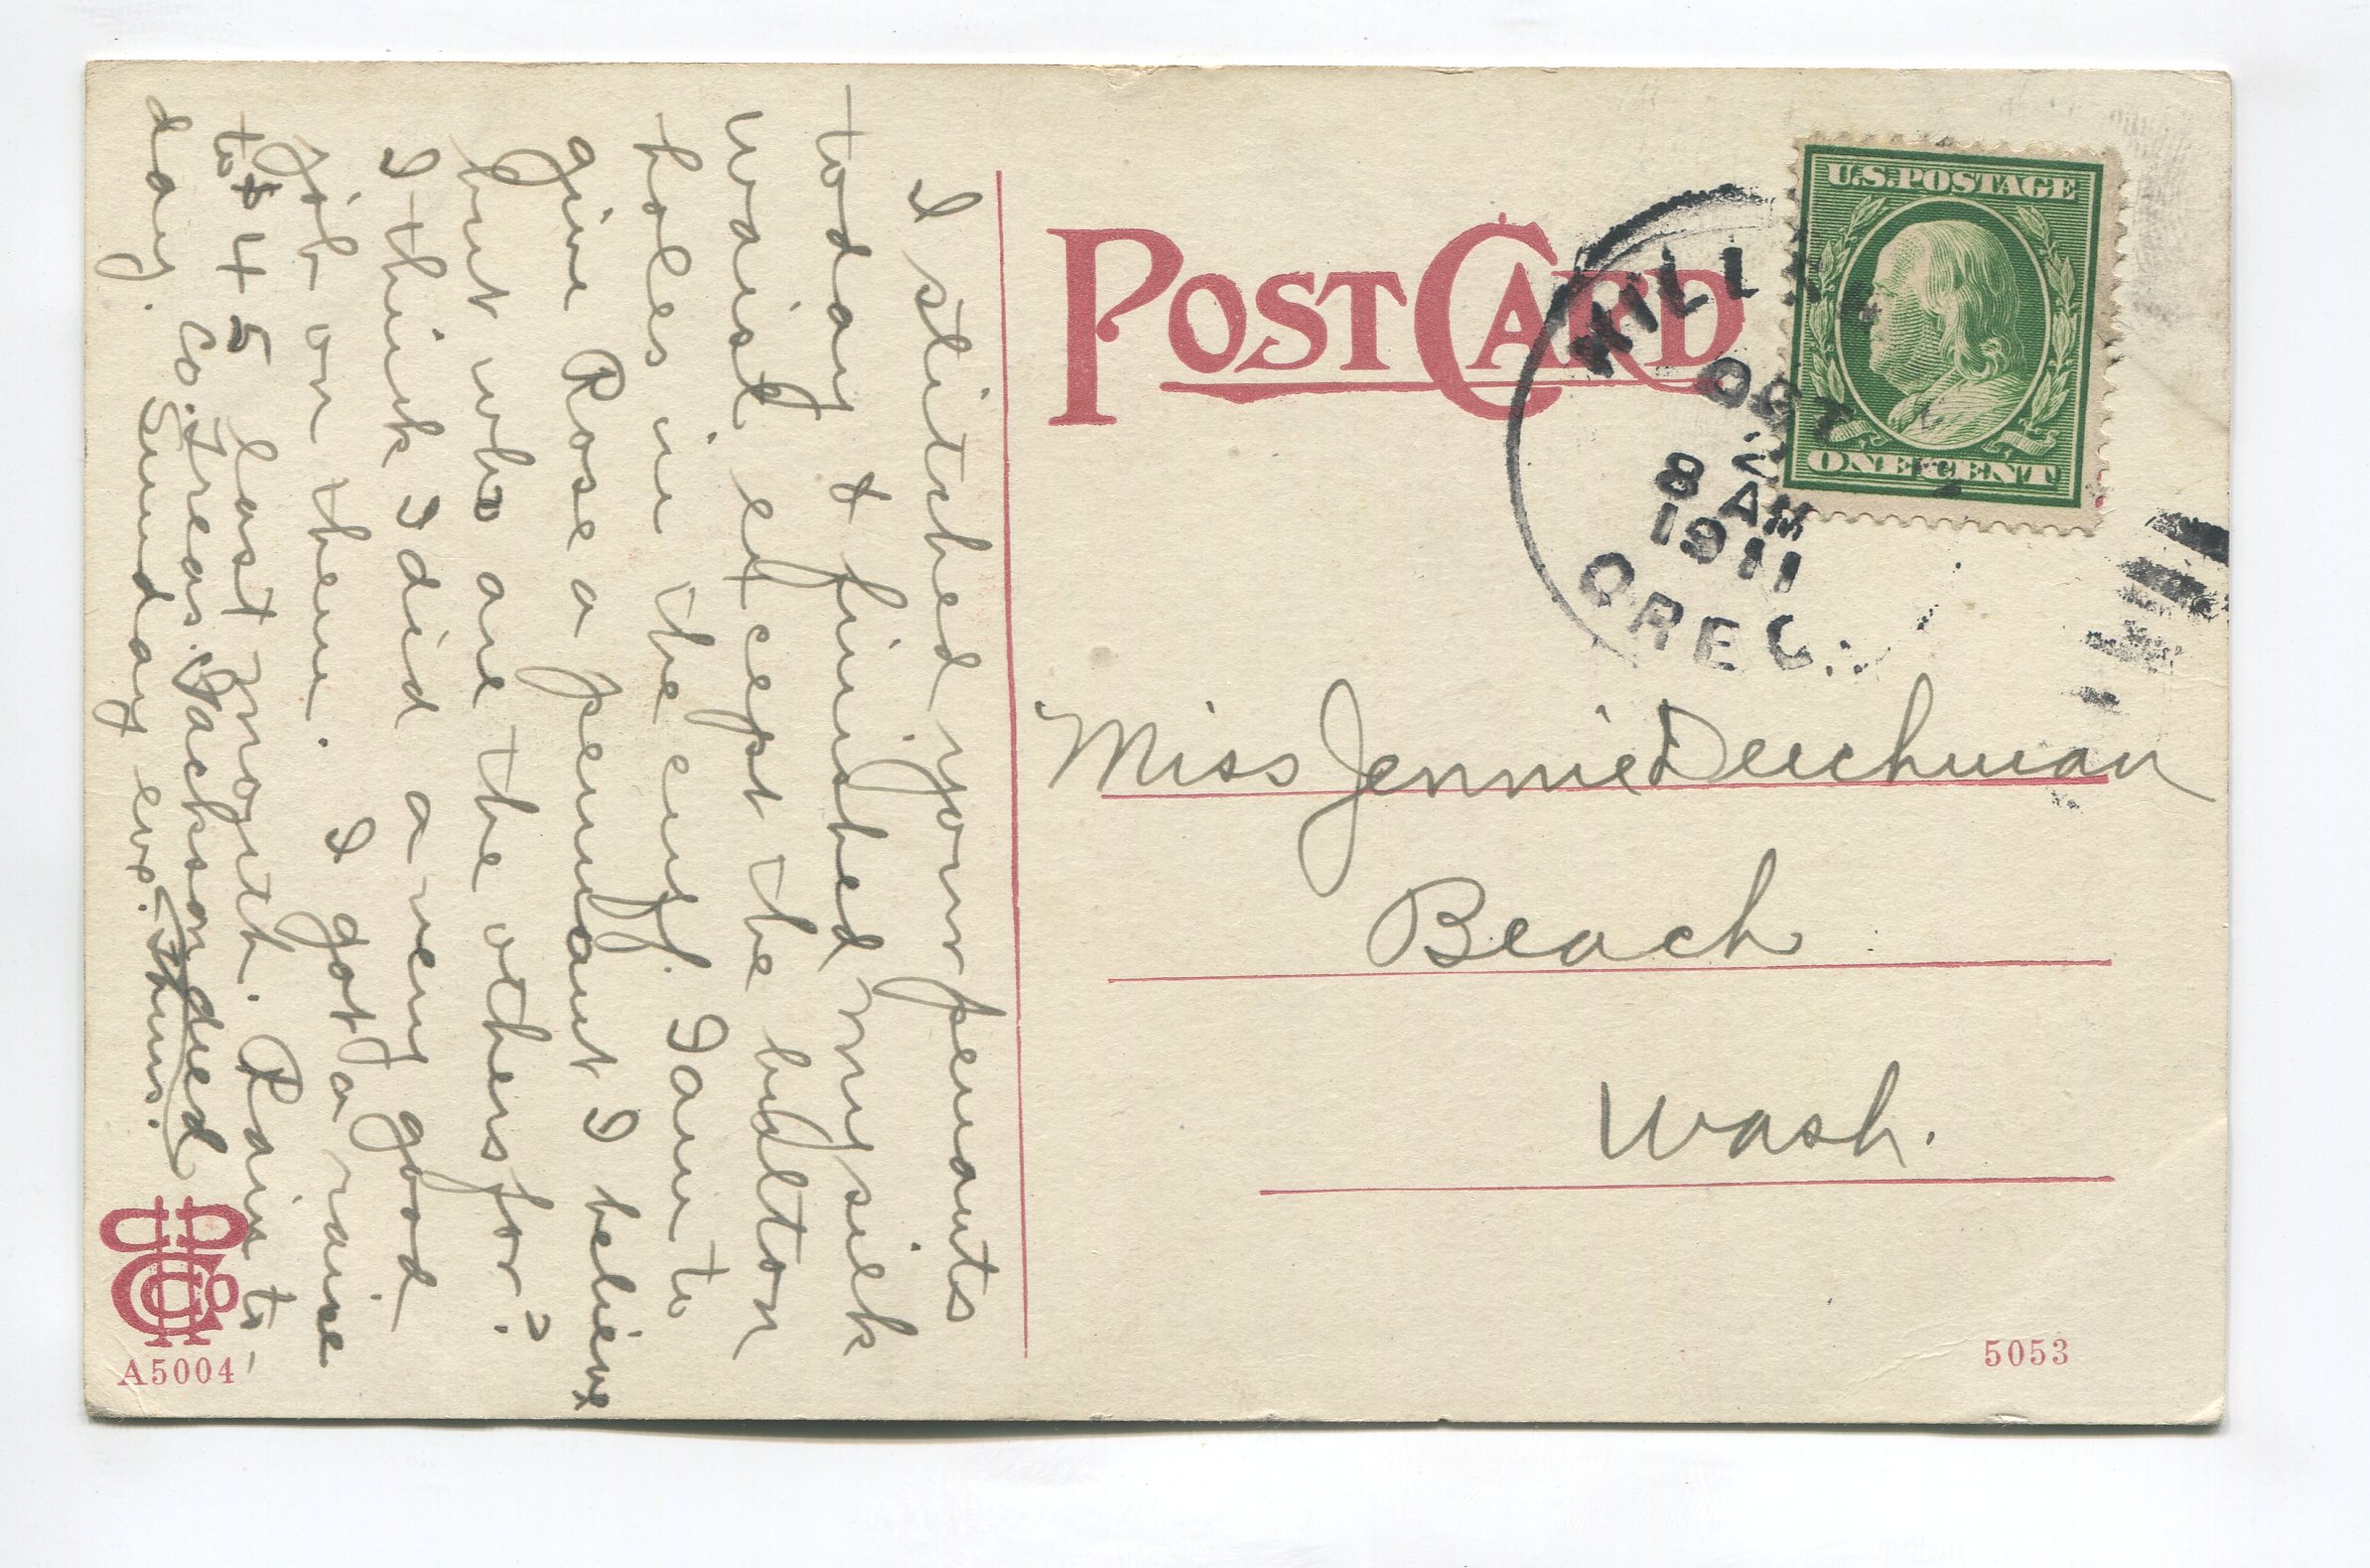 I stitched your penants
today & finished my silk
waist except the button
holes in the cuff. I am to
give Rose a pennant I believe
but who are the others for?
I think I did a very good
job on them. I got a raise
to $45 last month. Rain to-
day. Co. Treas. Jackson died
Sunday eve.
POST CARD
U.S. POSTAGE
ONE CENT
OCT
2
8 AM
1911
OREG.
Miss Jennie Deichman
Beach
Wash.
A5004
5053